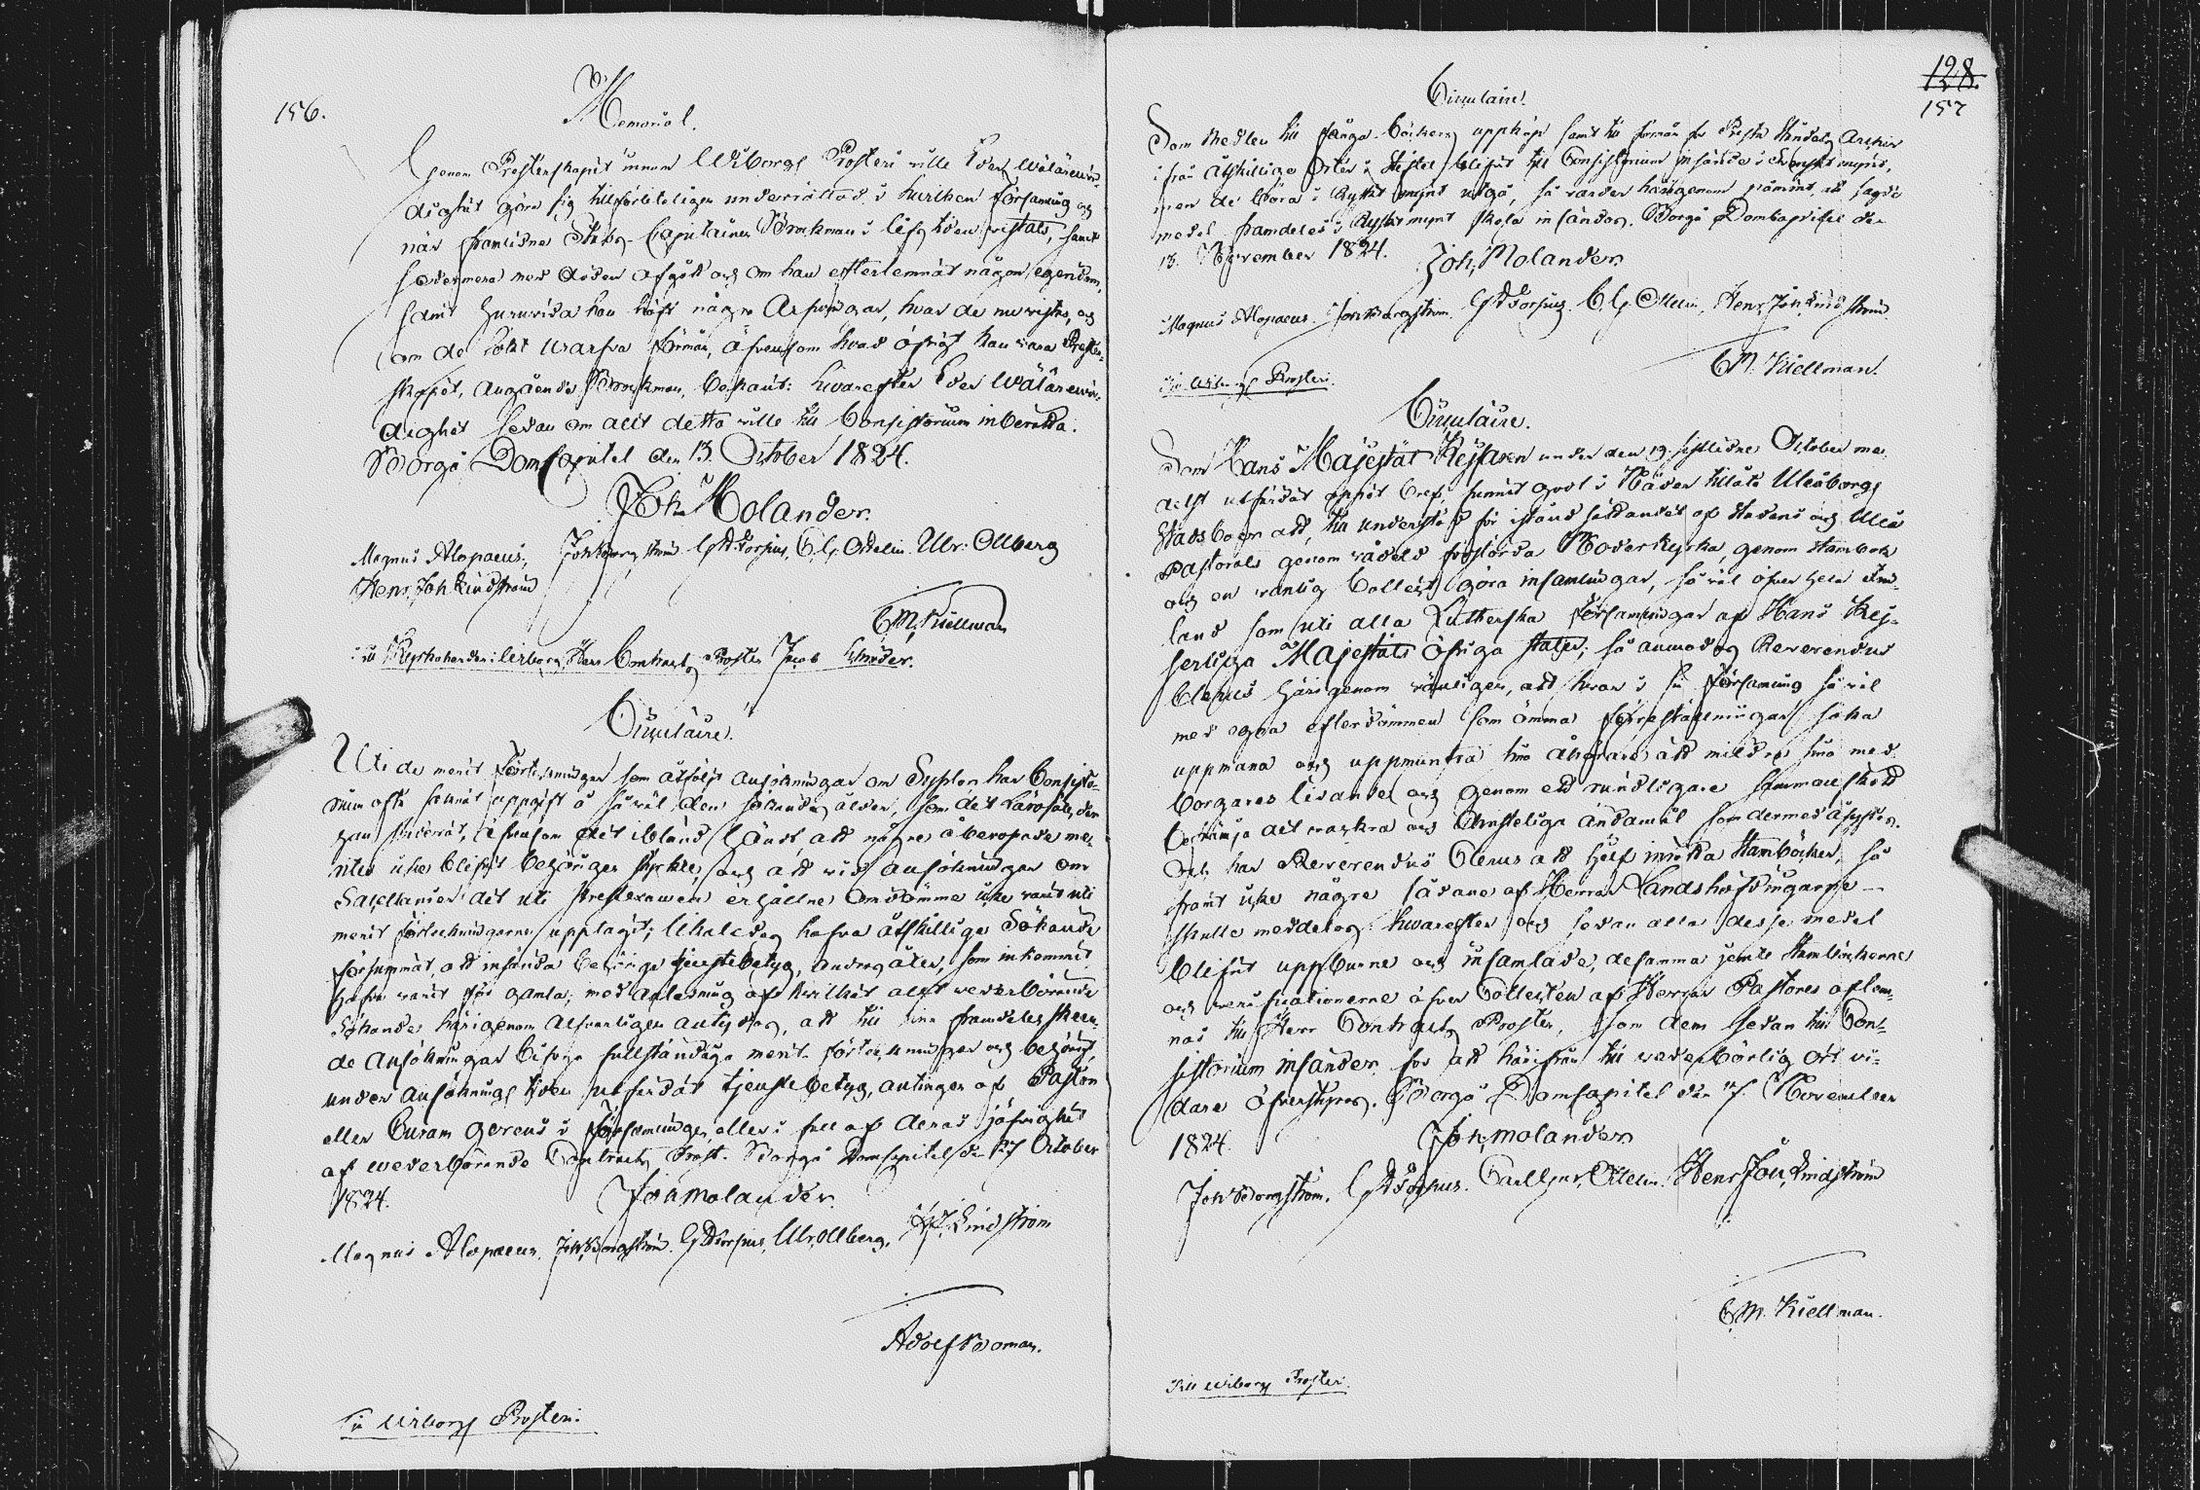 156.
Memorial.
Genom Presterskapet innom Wiborgs Prosteri ville Eder Wälärewör-
dighet göra sig tillförlåteligen underrättad, i hvilken Församling och
när framlidne Stabs-Capitainen Brockman i lifstiden vistats, samt
sedermera med döden afgått och om han efterlemnat någon egendom,
samt huruvida han haft några Arfvingar, hvar de nu vistas, och
om de sökt Warfva Förmån, äfvensom hvad öfrigt kan vara Prester-
skapet, angående Brockman, bekant: hvarefter Eder Wälärewör-
dighet sedan om allt detta ville till Consistorium inberätta.
Borgå Domkapitel den 13. October 1824.
Joh. Molander.
Magnus Alopaeus, Joh. Borgström G A Forsius, C. G. Ottelin Ulr: Ollberg
Henr. Joh. Lindström
C M. Kiellman
Till Kyrkoherden i Wiborg, Herr Contracts Prosten Jacob
Circulaire.
Uti de merit Förteckningar som åtföljt ansökningar om Syslor har Consisto-
rium ofta saknat uppgift å så väl den sökandes ålder, som det Lärosäte, der
han studerat, äfvensom det ibland händt, att några åberopade me-
riter icke blifvit behörigen styrkte, och att vid ansökningar om
Sacellanier det uti Prestexamen erhållne Omdömme icke varit uti
merit förteckningarne upptagit; likaledes hafva åtskillige Sökande
försummat, att insända behörige tjenstebetyg, andras åter, som inkommit
hafva varit för gamla; med anledning af hvilket allt wederbörande
Sökande härigenom alfvarligen antydes, att till sina framdeles skeen-
de ansökningar bifoga fullständiga merit-förteckningar och behörigt,
under ansöknings tiden utfärdat tjenstebetyg, antingen af Pastor
eller Curam gerens i Församlingen, eller i fall af deras jäfvighet
af wederbörande Contracts Prost. Borgå Domkapitel den 27 October
1824. Joh Molander.
Magnus Alopaeus. Joh Borgström. G A Forsius, Ulr. Ollberg, H. J. Lindström
Adolf Boman.
Till Wiborgs Prosteri.
128.
157
Circulaire.
Som Medlen till Fänge böckers upphöp samt till förmån för Archiv
ifrån åtskillige Orter i Stiftet blifvit till Consistorium insände i Svenskt mynt,
men de böra i Ryskt mynt utgå, så varder härigenom påmint, att sagde
medel framdeles i Ryskt mynt skola insändas. Borgå Domkapitel den
13. November 1824. Joh. Molander
Magnus Alopaeus. Joh Borgström. G A Forsius. C. G. Ottelin, Henr. Joh Lindström
C M. Kiellman.
Till Wiborgs Prosteri.
Circulaire.
Som Hans Majestät Kejsaren under den 19. sistlidne October me-
delst utfärdat öppet bref, funnit godt i Nåder tillåta Uleåborgs
Stads boer att, till understöd för iståndsättandet af Stadens och Uleå
Pastorats genom vådeld förstörda Moderkyrka, genom Stambok
och en vanlig Collect göra insamlingar, så väl öfver hela Fin-
land som uti alla Lutherska Församlingar af Hans Kej-
serliga Majestäts öfriga stater; så anmodas Reverendus
Clerus härigenom vänligen, att hvar i sin Församling så väl
med egna efterdömmen som ömma föreställningar söka
uppmana och uppmuntra sina åhörare att mildra sina med
borgares lidande och genom ett rundligare sammanskott
befrämja det vackra och Christeliga ändamål som dermed åsyftas.
Och har Reverendus Clerus att sjelf inrätta Stamböcker, så
framt icke några sådane af Herrar Landshöfdingarne
skulle meddelas: hvarefter och sedan alla desse medel
blifvit uppburne och insamlade, desamma jemte Stamböckerne
och verificationerne öfver Collecten af Herrar Pastores aflem-
nas till Herr Contracts Prosten, som dem sedan till Con-
sistorium insänder för att härifrån till wederbörlig ort vi-
dare öfverstyras. Borgå Domkapitel den 17. November
1824. Joh. Molander
Joh Borgström. G A Forsius. Carl Gust. Ottelin. Henr Joh Lindström
C. M. Kiellman.
Till Wiborgs Prosteri